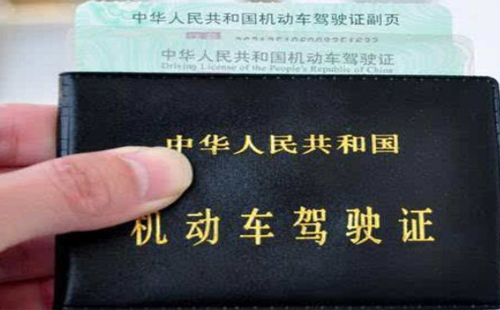 中华人民共和国机动车驾驶证副页
中华人民共和国机动车驾驶证
Driving License of the People's Republic of China
中华人民共和国
机动车驾驶证